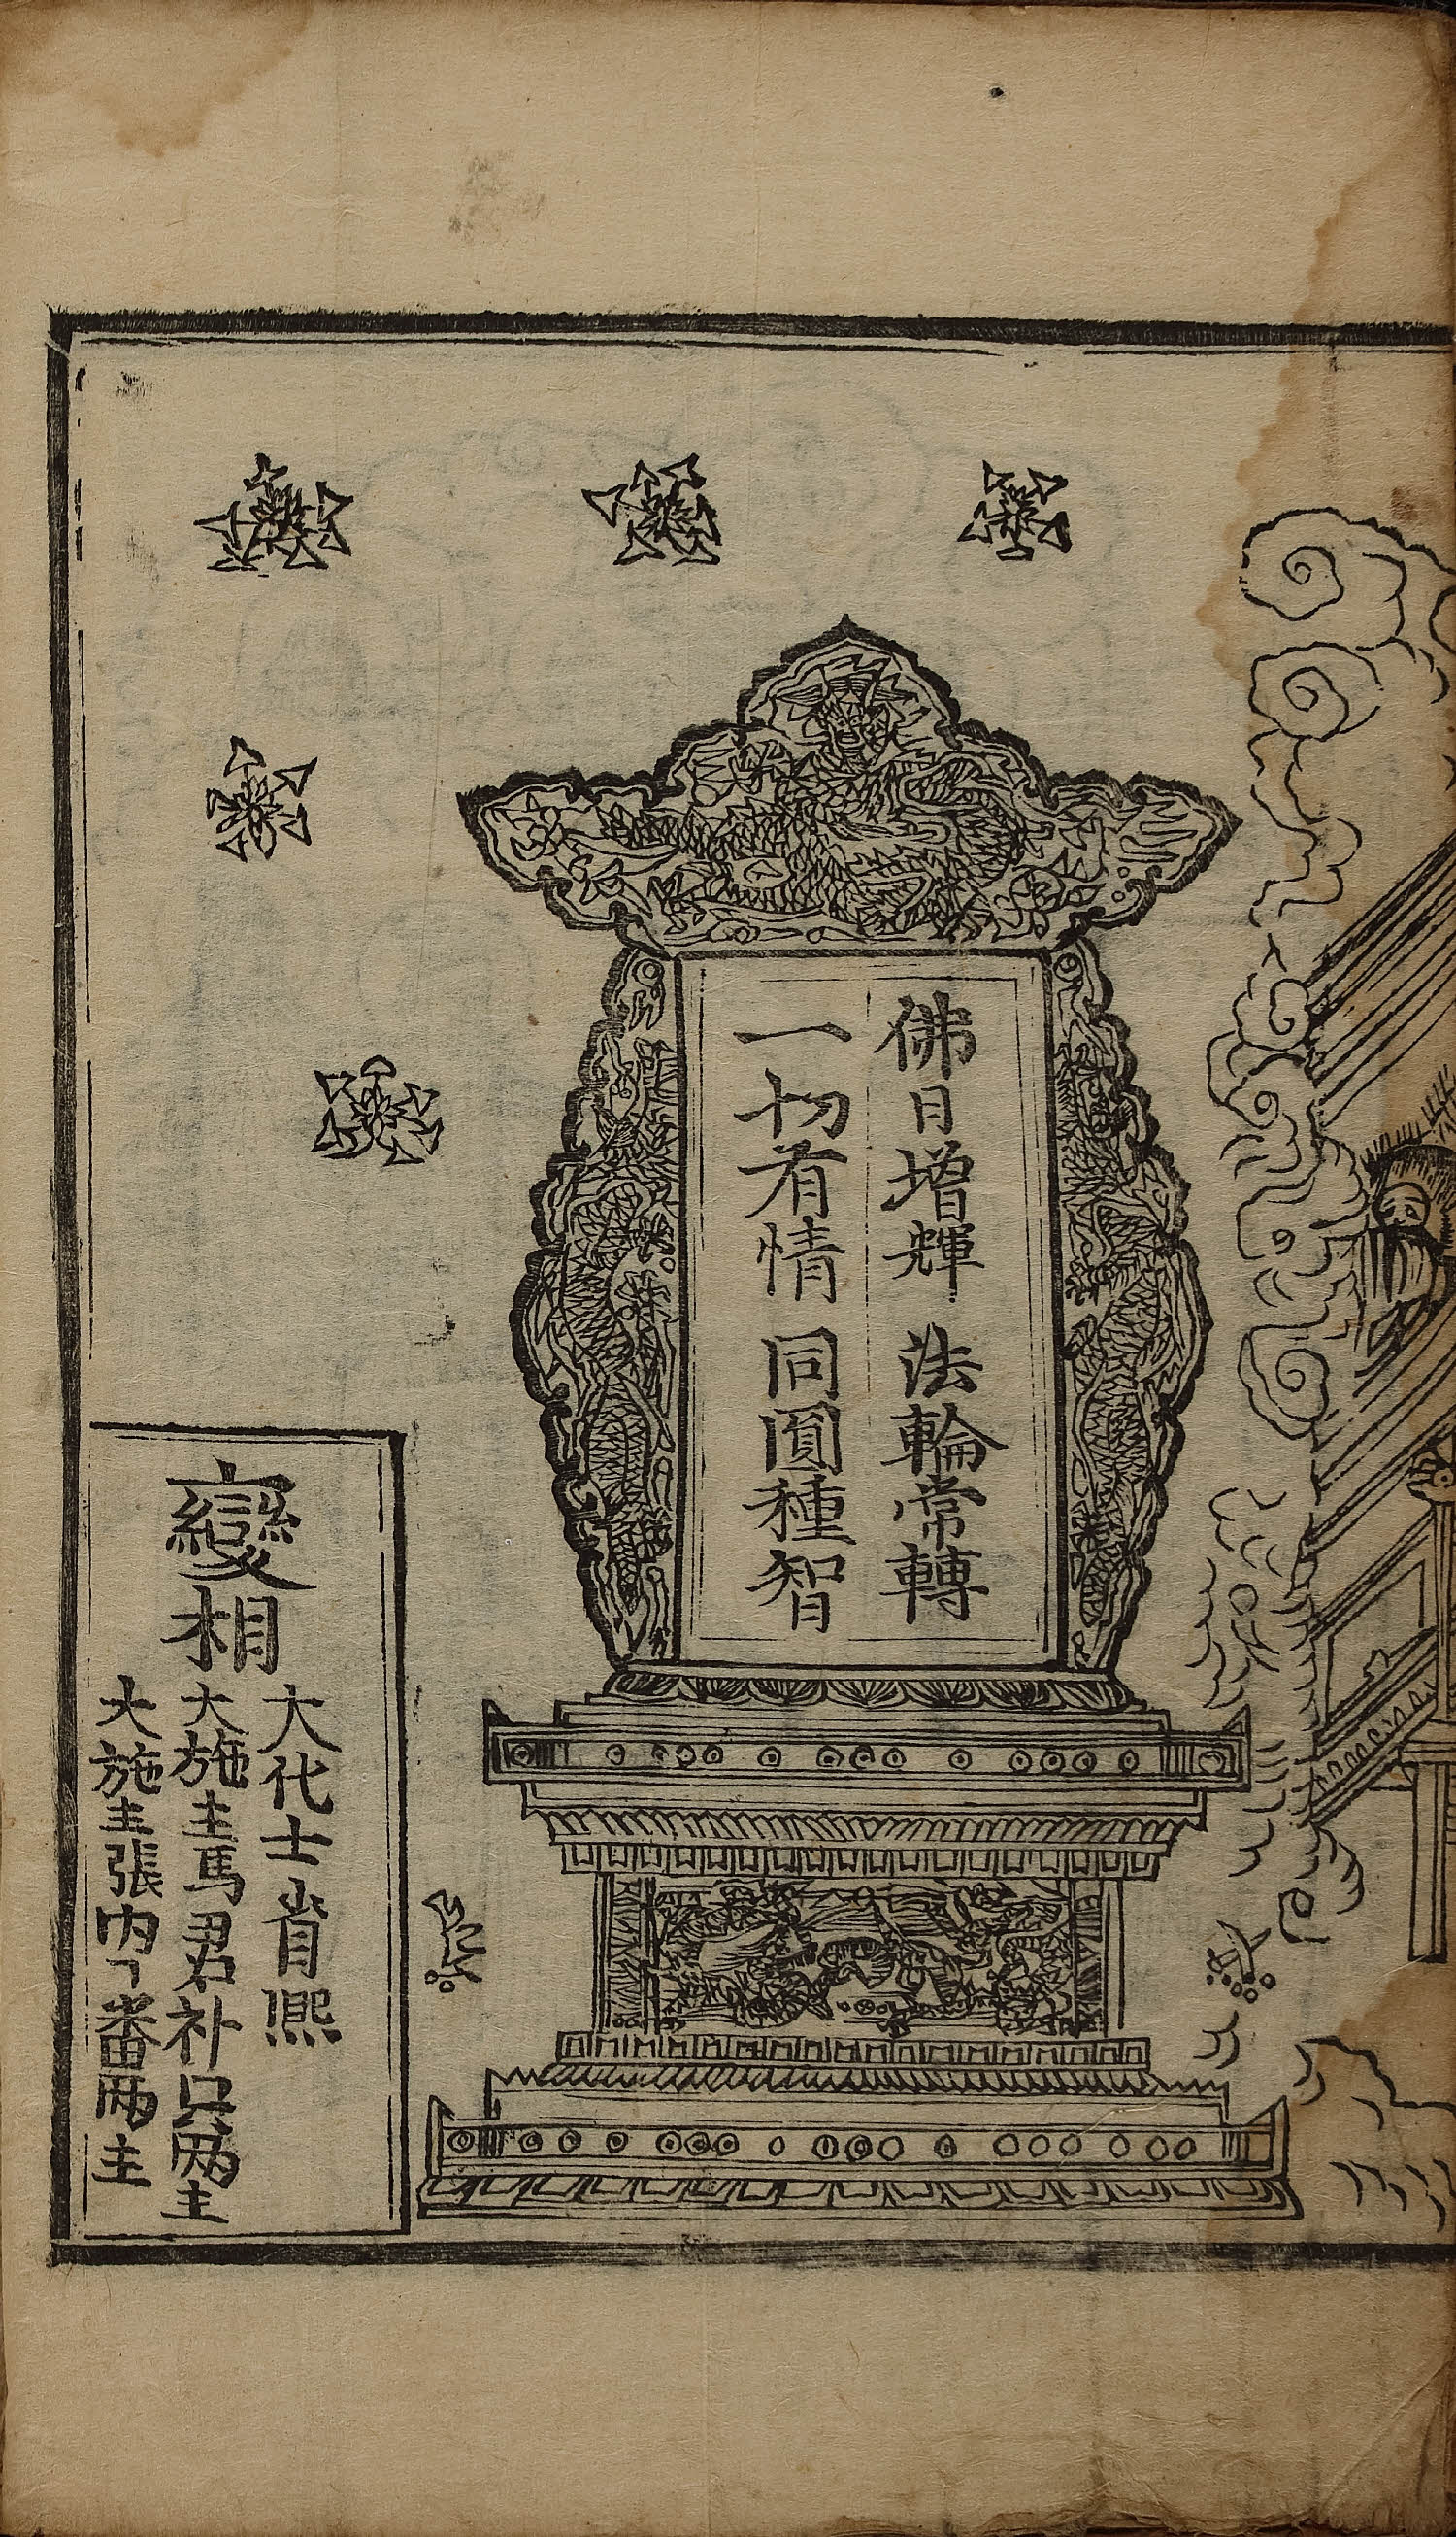 佛日增輝 法輪常轉
一切有情 同圓種智
變相
大代士肖熙
大施主馬君朴只两主
大施主張內番两主